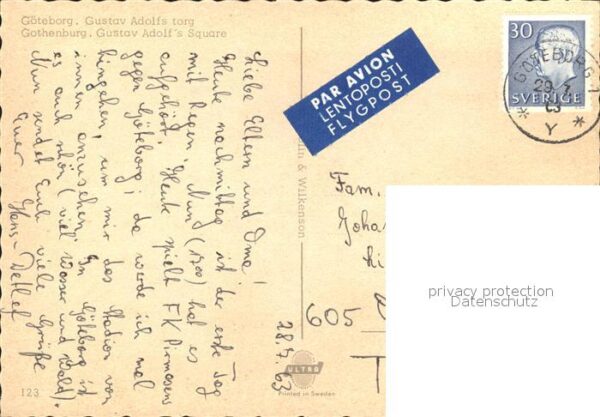 Göteborg. Gustav Adolfs torg
Gothenburg. Gustav Adolf's Square
Liebe Eltern und Oma!
Heute nachmittag ist der erste Tag
mit Regen. Nun (17.00) hat es
aufgehört. Heute spielt FK Pirmasens
gegen Göteborg; da werde ich mal
hingehen, um mir das Stadion von
innen anzusehen. In Göteborg ist
es auch schön (viel Wasser und Wald).
Nun sendet Euch viele Grüße
Euer Hans-Detlef
28.7.63
PAR AVION
LENTOPOSTI
FLYGPOST
30
SVERIGE
GÖTEBORG 1
29.7.
63
* Y *
& Wilkenson
Fam.
Joha
605
T
privacy protection
Datenschutz
ULTRA
Printed in Sweden
123